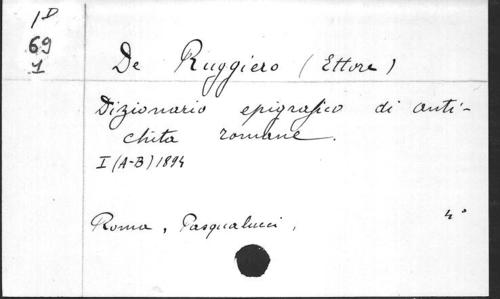 1D
69
1
De Ruggiero (Ettore)
Dizionario epigrafico di anti-
chita romane.
I (A-B) 1894
Roma, Pasqualucci,
4°